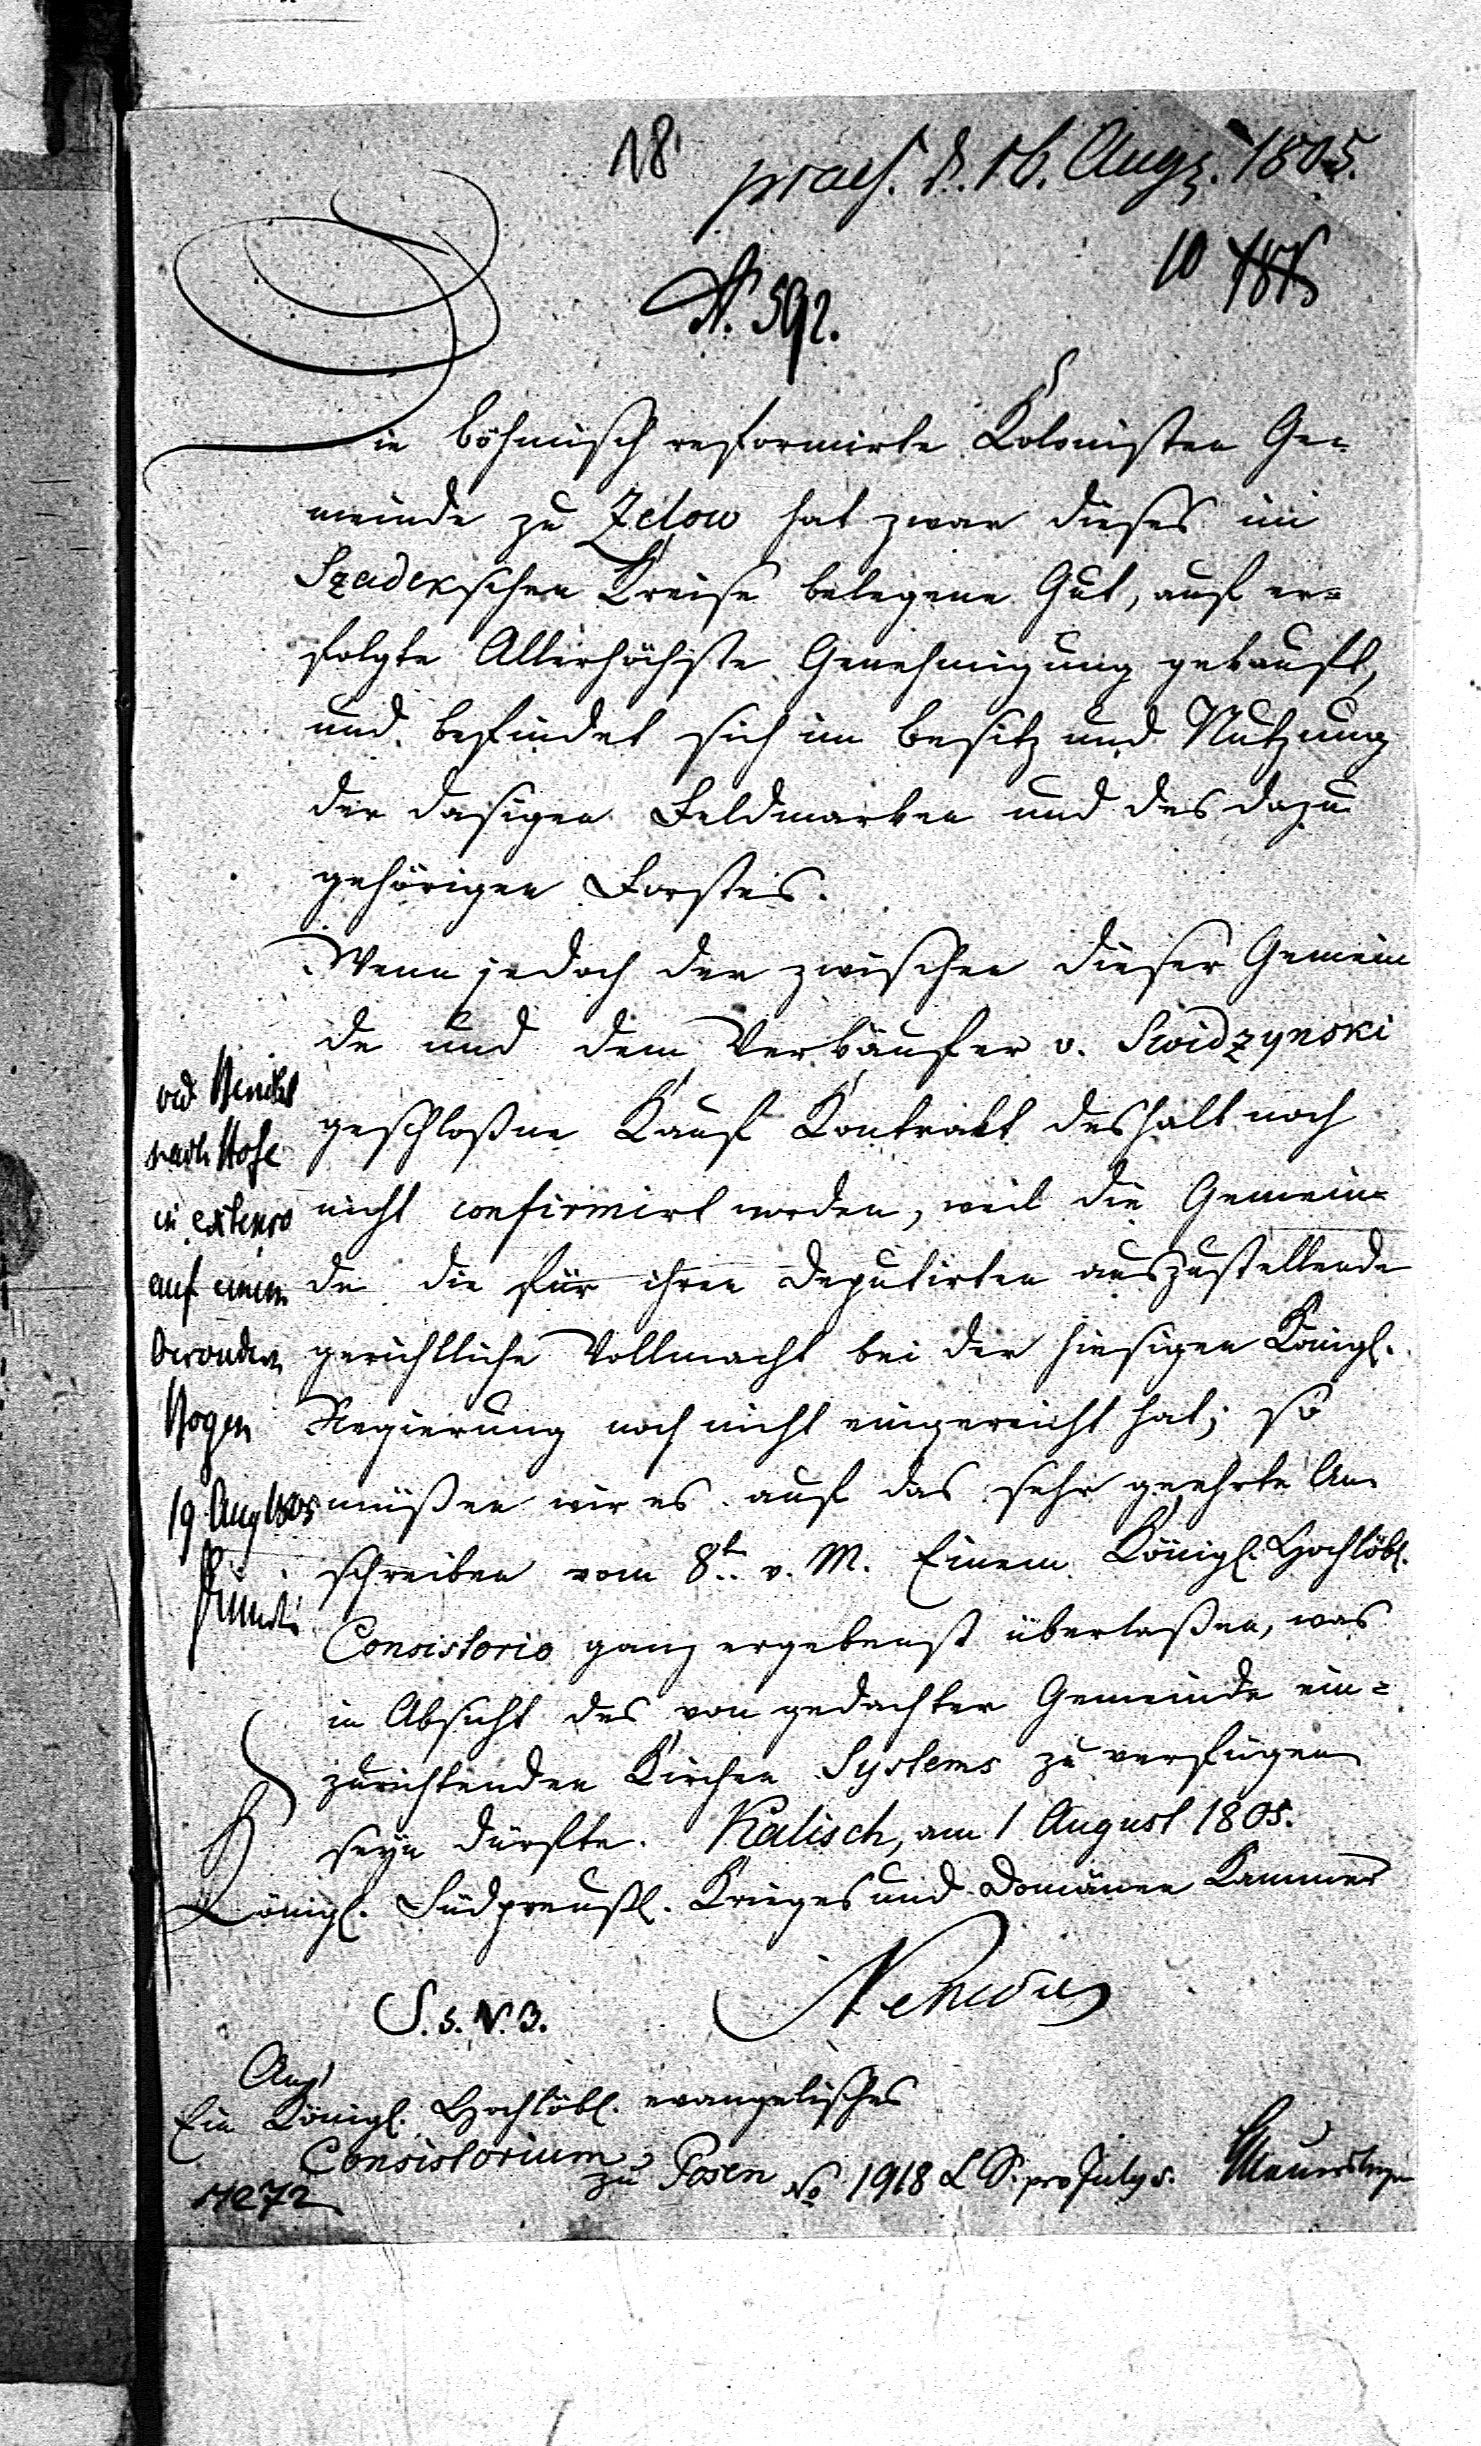 18
praes. d. 16. Aug. 1805.
10
N. 592.
Die böhmisch reformirte Kolonisten Ge-
meinde zu Zelow hat zwar dieses im
Szadekschen Kreise belegene Gut, auf er-
folgte Allerhöchste Genehmigung gekauft,
und befindet sich im Besitz und Nutzung
der dasigen Feldmarken und des dazu
gehörigen Forstes.
Wenn jedoch der zwischen dieser Gemein
de und dem Verkäufer v. Swidzynski
geschloßne Kauf Kontrakt deshalb noch
nicht confirmirt worden, weil die Gemein-
de die für ihren Deputirten auszustellende
gerichtliche Vollmacht bei der hiesigen Königl.
Regierung noch nicht eingereicht hat; so
müßen wir es auf das sehr geehrte An-
schreiben vom 8t. v. M. Einem Königl. Hochlöbl.
Consistorio ganz ergebenst überlaßen, was
in Absicht des von gedachter Gemeinde ein-
zurichtenden Kirchen Systems zu verfügen
seyn dürfte. Kalisch, am 1 August 1805.
Königl. Südpreußl. Krieges und Domänen Kammer
vid. Bericht
nach Hofe
in extenso
auf einem
besondern
Bogen
19 Aug 1805
S. s. N. 3.
An
Ein Königl. Hochlöbl. evangelisches
Consistorium
zu Posen
No 1918 L S. pro July 5.